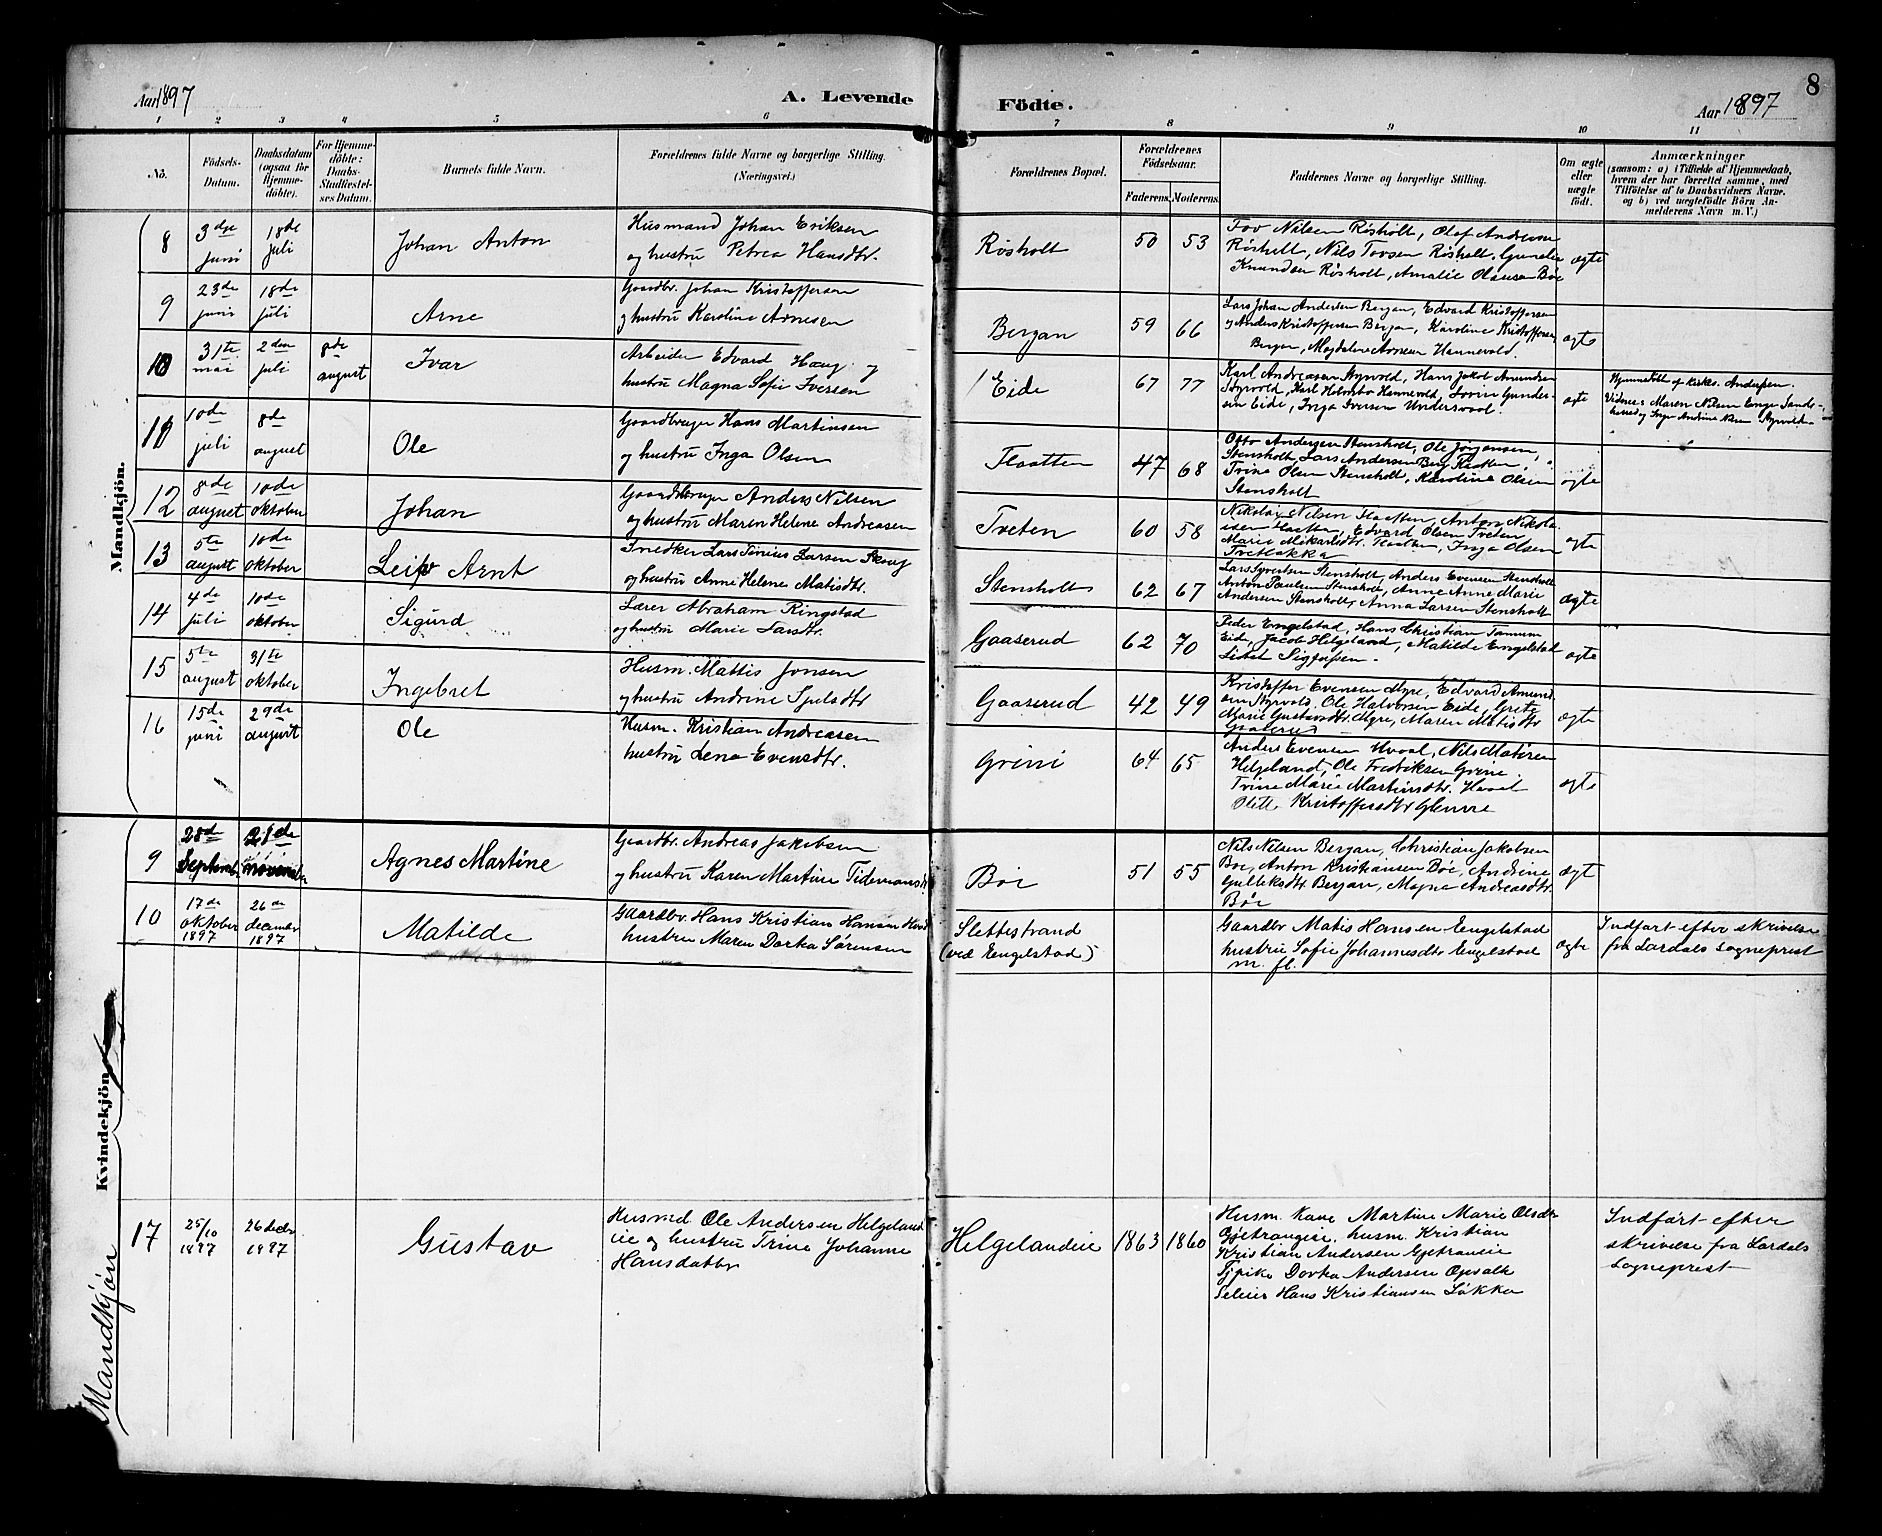 8
Aar 1897
A. Levende
Födte.
Aar 1897
1 2 3 4 5 6 7 8 9 10 11
No.
Födsels-
Datum.
Daabsdatum
(ogsaa for
Hjemme-
döbte).
For Hjemme-
döbte:
Daabs-
Stadfæstel-
ses Datum.
Barnets fulde Navn.
Forældrenes fulde Navne og borgerlige Stilling.
(Næringsvei.)
Forældrenes Bopæl.
Forældrenes
Födselsaar.
Faderens. Moderens.
Faddernes Navne og borgerlige Stilling.
Om ægte
eller
uægte
född.
Anmærkninger
(saasom: a) i Tilfælde af Hjemmedaab,
hvem der har forrettet samme, med
Tilföielse af to Daabsvidners Navne.
og b) ved uægtefödte Börn An-
melderens Navn m. V.)
Mandkjön.
8
3die
juni
18de
juli
Johan Anton
Husmand Johan Eriksen
og hustru Petrea Hansdtr.
Røsholt
50 53
Tov Nilsen Røsholt, Olaf Andersen
Røsholt, Nils Tovsen Røsholt, Gunelie
Knudsen Røsholt, Amalie Olausen Bøe
ægte
9
23de
juni
18de
juli
Arne
Gaardbr. Johan Kristoffersen
og hustru Karoline Arnesen
Bergan
59 66
Lars Johan Andersen Bergan, Edvard Kristoffersen
og Anders Kristoffersen Bergan, Karoline Kristoffersen
Bergan, Magdalene Arnesen Hannevold.
ægte
10
31te
mai
2den
juli
8de
august
Ivar
Arbeider Edvard Haug og
hustru Magna Sofie Iversen
Eide
67 77
Karl Andreasen Styrvold, Hans Jakob Amundsen
Styrvold, Karl Holmbo Hannevold, Lovise Gunder-
sen Eide, Inga Iversen Undersvaal.
ægte
Hjemmedöbt af kirkes. Anderssen.
Vidner: Maren Nilsen Enge Sande-
herred og Inger Andrine Styrvold
11
10de
juli
8de
august
Ole
Gaardbruger Hans Martinsen
og hustru Inga Olsen
Flaatten
47 68
Otto Andersen Stensholt, Ole Jörgensen,
Stensholt, Lars Andersen Berg Flaatten,
Trine Olsen Stensholt, Karoline Olsen
Stensholt
ægte
12
8de
august
10de
oktober
Johan
Gaardbruger Anders Nilsen
og hustru Maren Helene Andreasen
Tveten
60 58
Nikolai Nilsen Flaatten, Anton Nikola-
isen Flaatten, Edvard Olsen Tveten
Marie Mikaelsdtr. Flaatten, Inga Olsen
Tvetbakka
ægte
13
5te
august
10de
oktober
Leif Arnt
Snedker Lars Tinius Larsen Skaug
og hustru Anne Helene Matisdtr.
Stensholt
62 67
Lars Syvertsen Stensholt, Anders Evensen Stensholt
Anton Paulsen Stensholt, Anne Marie
Andersen Stensholt, Anna Larsen Stensholt
ægte
14
4de
juli
10de
oktober
Sigurd
Lærer Abraham Ringstad
og hustru Marie Larsdtr.
Gaaserud
62 70
Peder Engelstad, Hans Christian Tamum
Eide, Jacob Helgeland, Matilde Engelstad
ægte
15
5te
august
31te
oktober
Ingebret
Husm. Mattis Jonsen
og hustru Andrine Sjulsdtr.
Gaaserud
42 49
Kristoffer Evensen Myre, Edvard Amund-
sen Styrvold, Ole Halvorsen Eide, Grete
Marie Gustavsdtr. Myre, Maren Matisdtr
Gaaserud
ægte
16
15de
juni
29de
august
Ole
Husm. Kristian Andreasen
hustru Lena Evensdtr.
Grini
64 65
Anders Evensen Hvaal, Nils Matisen
Helgeland, Ole Fredriksen Grini.
Trine Marie Martinsdtr. Hvaal
Olette Kristoffersdtr Glenne
ægte
Kvindekjön.
9
28de
September
21de
november
Agnes Martine
Gaardbr. Andreas Jakobsen
og hustru Karen Martine Tidemansdtr
Bøe
51 55
Nils Nilsen Bergan, Christian Jakobsen
Bøe, Anton Kristiansen Bøe, Andrine
Gulleksdtr Bergan, Magna Andreasdtr.
Bøe
ægt
10
17de
oktober
1897
26de
december
1897
Matilde
Gaardbr. Hans Kristian Hansen
hustru Maren Dorka Sørensen
Slettestrand
(ved Engelstad)
Gaardbr Matis Hansen Engelstad
hustru Sofie Johannesdtr Engelstad
m. fl.
ægte
Indført efter skrivelse
fra Lardals sogneprest
Mandkjøn
17
25/10
1897
26 decbr
1897
Gustav
Husmd. Ole Andersen Helgeland
eie og hustru Trine Johanne
Hansdatter
Helgelandeie
1863 1860
Husm. kone Martine Marie Olsdr
Gjetrangeie. husm. Kristian
Kristian Andersen Gjetraneie
Tjpike Dorka Andersen Opvalk
Seleier Hans Kristiansen Løkka
Indført efter
skrivelse fra Lardals
sogneprest